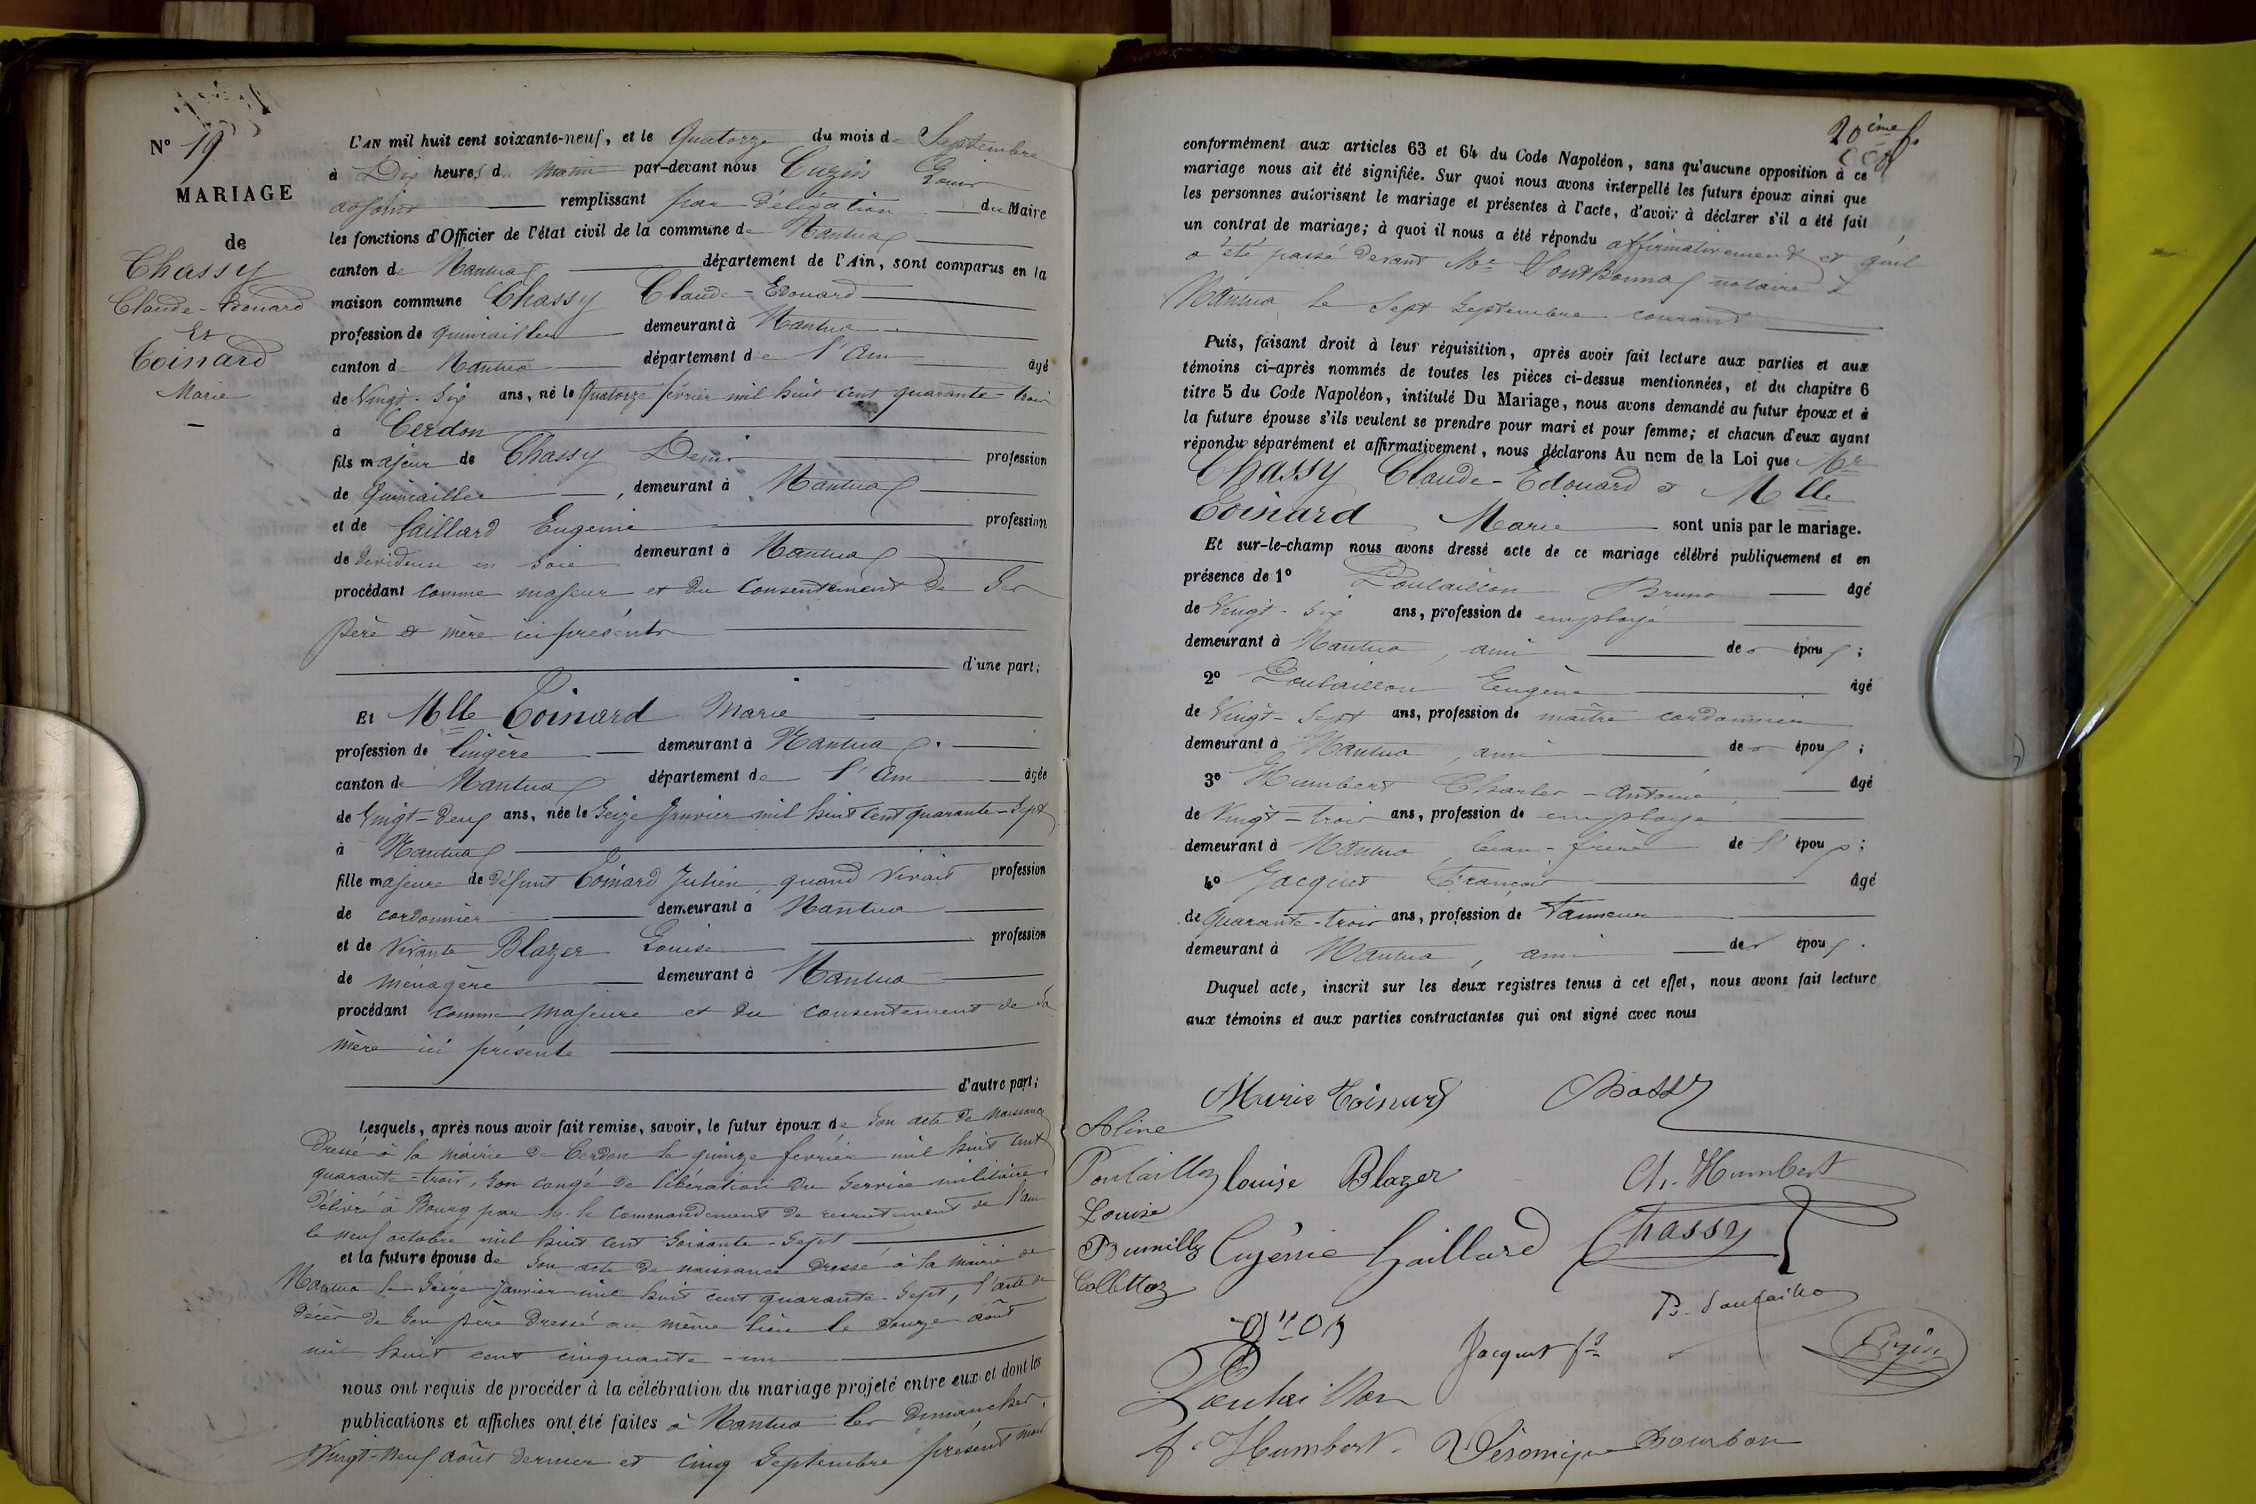 N° 19
MARIAGE
de
Chassy
Claude-Edouard
Et
Toinard
Marie
L'AN mil huit cent soixante-neuf, et le Quatorze du mois de Septembre
à Dix heures d. matin par-devant nous Cuzin Louis
adjoint remplissant par délégation du Maire
les fonctions d'Officier de l'état civil de la commune de Nantua
canton de Nantua département de l'Ain, sont comparus en la
maison commune Chassy Claude-Edouard
profession de quincailler demeurant à Nantua
canton de Nantua département de l'Ain âgé
de Vingt-Six ans, né le Quatorze février mil huit cent quarante-trois
à Cerdon
fils majeur de Chassy Denis profession
de quincailler, demeurant à Nantua
et de Gaillard Eugénie profession
de Dévideuse en soie demeurant à Nantua
procédant comme majeur et du Consentement de Ses
père et mère ici présents
d'une part;
Et Mlle Toinard Marie
profession de lingère demeurant à Nantua
canton de Nantua département de l'Ain âgée
de Vingt-Deux ans, née le Seize Janvier mil huit cent quarante-Sept
à Nantua
fille majeure de défunt Toinard Julien, quand vivait profession
de cordonnier demeurant à Nantua
et de vivante Blazer Louise profession
de ménagère demeurant à Nantua
procédant comme majeure et du consentement de Sa
mère ici présente
d'autre part;
Lesquels, après nous avoir fait remise, savoir, le futur époux de Son acte de naissance
Dressé à la mairie de Cerdon le quinze février mil huit cent
quarante-trois, Son congé de libération du Service militaire
Délivré à Bourg par le Commandement de recrutement de l'ain
le neuf octobre mil huit cent Soixante-Sept
et la future épouse de Son acte de naissance dressé à la mairie de
Nantua le Seize Janvier mil huit cent quarante-Sept, l'acte de
décès de Son père Dressé au même lieu le Douze août
mil huit cent cinquante-un
nous ont requis de procéder à la célébration du mariage projeté entre eux et dont les
publications et affiches ont été faites à Nantua les Dimanches
Vingt-neuf août dernier et cinq Septembre présent mois
20ème f.
conformément aux articles 63 et 64 du Code Napoléon, sans qu'aucune opposition à ce
mariage nous ait été signifiée. Sur quoi nous avons interpellé les futurs époux ainsi que
les personnes autorisant le mariage et présentes à l'acte, d'avoir à déclarer s'il a été fait
un contrat de mariage; à quoi il nous a été répondu affirmativement et qu'il
a été passé devant Me notaire à
Nantua, le Sept Septembre courant
Puis, faisant droit à leur réquisition, après avoir fait lecture aux parties et aux
témoins ci-après nommés de toutes les pièces ci-dessus mentionnées, et du chapitre 6
titre 5 du Code Napoléon, intitulé Du Mariage, nous avons demandé au futur époux et à
la future épouse s'ils veulent se prendre pour mari et pour femme; et chacun d'eux ayant
répondu séparément et affirmativement, nous déclarons Au nom de la Loi que Mr
Chassy Claude-Edouard et Mlle
Toinard Marie sont unis par le mariage.
Et sur-le-champ nous avons dressé acte de ce mariage célébré publiquement et en
présence de 1° Poutaillon Bruno âgé
de Vingt-Six ans, profession de employé
demeurant à Nantua, ami des époux;
2° Poutaillon Eugène âgé
de Vingt-Sept ans, profession de maître cordonnier
demeurant à Nantua, ami des époux;
3° Humbert Charles-Antoine âgé
de Vingt-trois ans, profession de employé
demeurant à Nantua, beau-frère de l'époux;
4° Jacquet François âgé
de Quarante-trois ans, profession de Tanneur
demeurant à Nantua, ami des époux.
Duquel acte, inscrit sur les deux registres tenus à cet effet, nous avons fait lecture
aux témoins et aux parties contractantes qui ont signé avec nous
Marie Toinard Chassy
Aline
Poutaillon louise Blazer Ch. Humbert
Louise
Eugénie Gaillard Chassy
Jacquet fs
Poutaillon
f. Humbert Véronique Bourbon